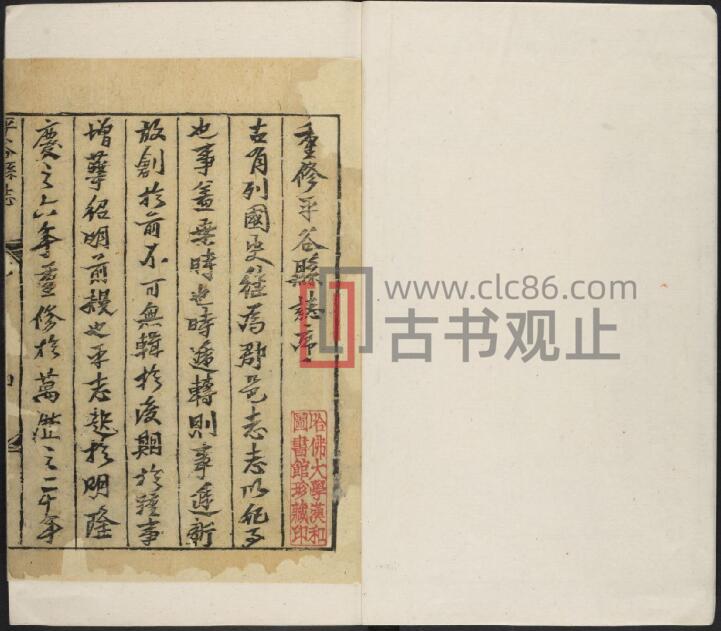 重修平谷縣誌序
古有列國史繼為郡邑志志以紀事
也事蓋乘時也時遞轉則事遞新
故創於前不可無輯於後期於踵事
增華紹明前襈也平志起於明隆
慶之六年重修於萬曆之二十年
平谷縣志
哈佛大學漢和
圖書館珍藏印
www.clc86.com
古书观止